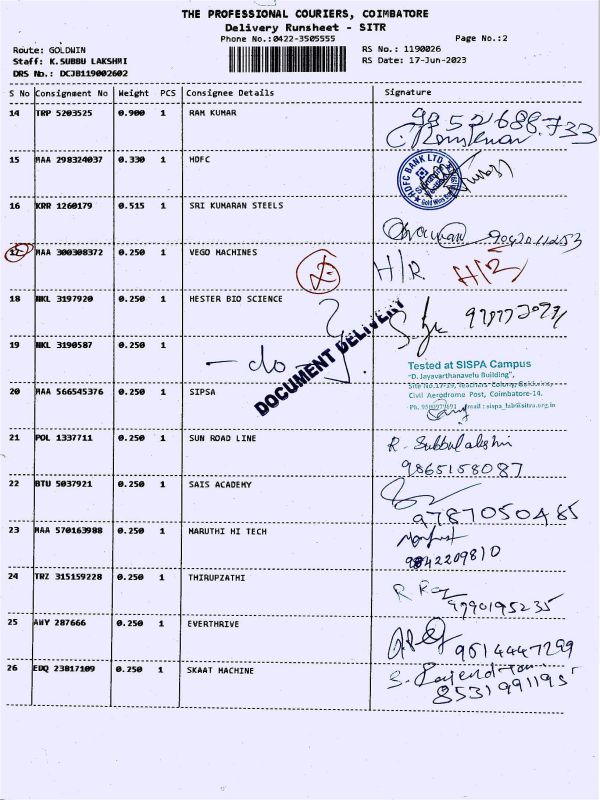 THE PROFESSIONAL COURIERS, COIMBATORE
Delivery Runsheet - SITR
Phone No.:0422-3505555
Page No.:2
Route: GOLDWIN
RS No.: 1190026
Staff: K.SUBBU LAKSHMI
RS Date: 17-Jun-2023
DRS No.: DCJB119002602
S No Consignment No Weight PCS Consignee Details Signature
14 TRP 5203525 0.900 1 RAM KUMAR
15 MAA 298324037 0.330 1 HDFC
HDFC BANK LTD
16 KRR 1260179 0.515 1 SRI KUMARAN STEELS
9042011253
17 MAA 300308372 0.250 1 VEGO MACHINES H/R H/R
18 NKL 3197920 0.250 1 HESTER BIO SCIENCE
DOCUMENT DELIVERY
19 NKL 3190587 0.250 1 - do -
Tested at SISPA Campus
"D. Jayavarthanavelu Building",
Site No.17-19, Teachers Colony, Goldwins,
Civil Aerodrome Post, Coimbatore-14.
20 MAA 566545376 0.250 1 SIPSA
21 POL 1337711 0.250 1 SUN ROAD LINE R. Subbulakshmi
9865158087
22 BTU 5037921 0.250 1 SAIS ACADEMY
9787050485
23 MAA 570163988 0.250 1 MARUTHI HI TECH
9842209810
24 TRZ 315159228 0.250 1 THIRUPZATHI
9790195235
25 AWY 287666 0.250 1 EVERTHRIVE
9514447299
26 EDQ 23817109 0.250 1 SKAAT MACHINE
8531991195